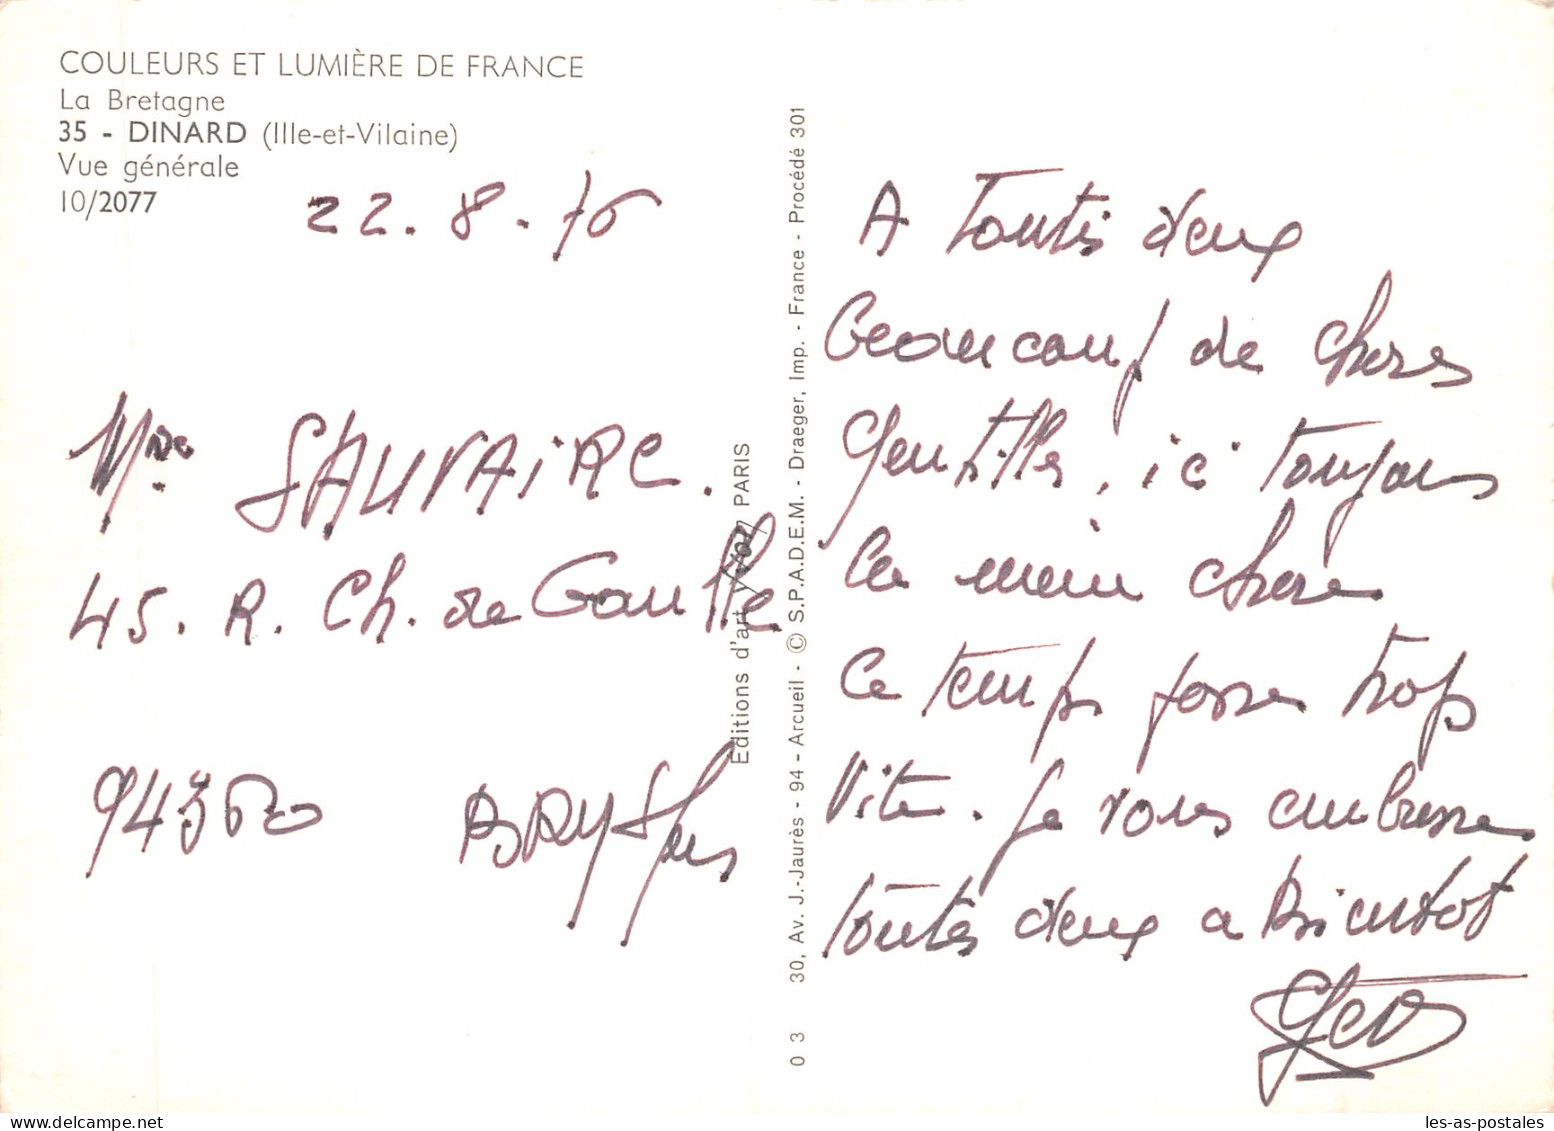 COULEURS ET LUMIÈRE DE FRANCE
La Bretagne
35 - DINARD (Ille-et-Vilaine)
Vue générale
10/2077
22.8.76
Mme SAUVAIRE.
45. R. Ch. de Gaulle
94360 BRY S/Mes
Editions d'art YVON PARIS
30, Av. J.-Jaurès - 94 - Arcueil - © S.P.A.D.E.M. - Draeger, Imp. - France - Procédé 301
0 3
A Toutes deux
beaucoup de choses
Gentilles, ici toujours
la meme chose
Ce temps passe trop
Vite. Je vous embrasse
toutes deux a Bientot
les-as-postales